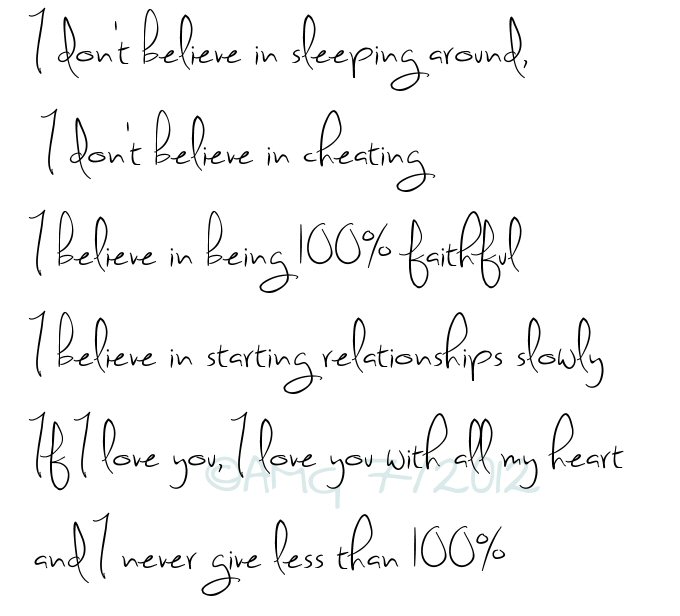 I don't believe in sleeping around,
I don't believe in cheating
I believe in being 100% faithful
I believe in starting relationships slowly
If I love you, I love you with all my heart
©AMG 7/2012
and I never give less than 100%